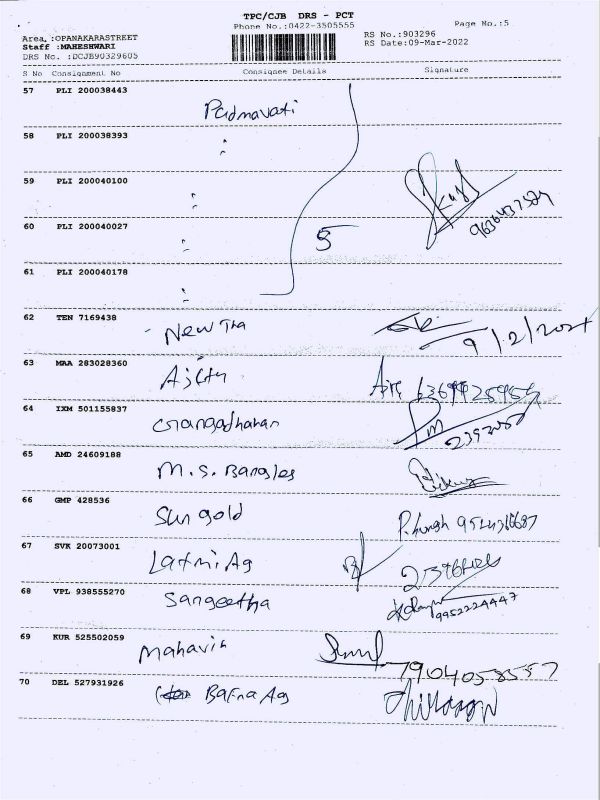 TPC/CJB DRS - PCT
Phone No.:0422-3505555
Page No.:5
Area, :OPANAKARASTREET
Staff :MAHESHWARI
DRS No. :DCJB90329605
RS No.:903296
RS Date:09-Mar-2022
S No Consignment No Consignee Details Signature
57 PLI 200038443
Padmavati
58 PLI 200038393
59 PLI 200040100
9636437524
60 PLI 200040027
5
61 PLI 200040178
62 TEN 7169438
New Tha
63 MAA 283028360
64 IXM 501155837
Gangadharan
65 AMD 24609188
M.S. Bangles
66 GMP 428536
Sun gold
67 SVK 20073001
Laxmi Ag
68 VPL 938555270
Sangeetha
9952224447
69 KUR 525502059
Mahavir
7904058557
70 DEL 527931926
Bafna Ag